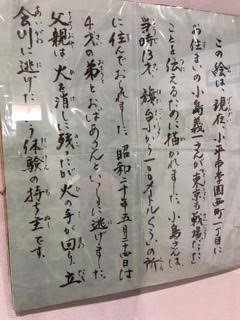 この絵は、現在、小平市学園西町一丁目に
お住まいの小島義一さんが東京も戦場だった
ことを伝えるために描かれました。小島さんは
当時13才、旗台小から一〇〇メートルぐらいの所
に住んでおられました。昭和二十年五月二十四日は
4才の弟とおばあさんといっしょに逃げました。
父親は火を消しに残ったが火の手が回り、立
会川に逃げたという体験の持ち主です。